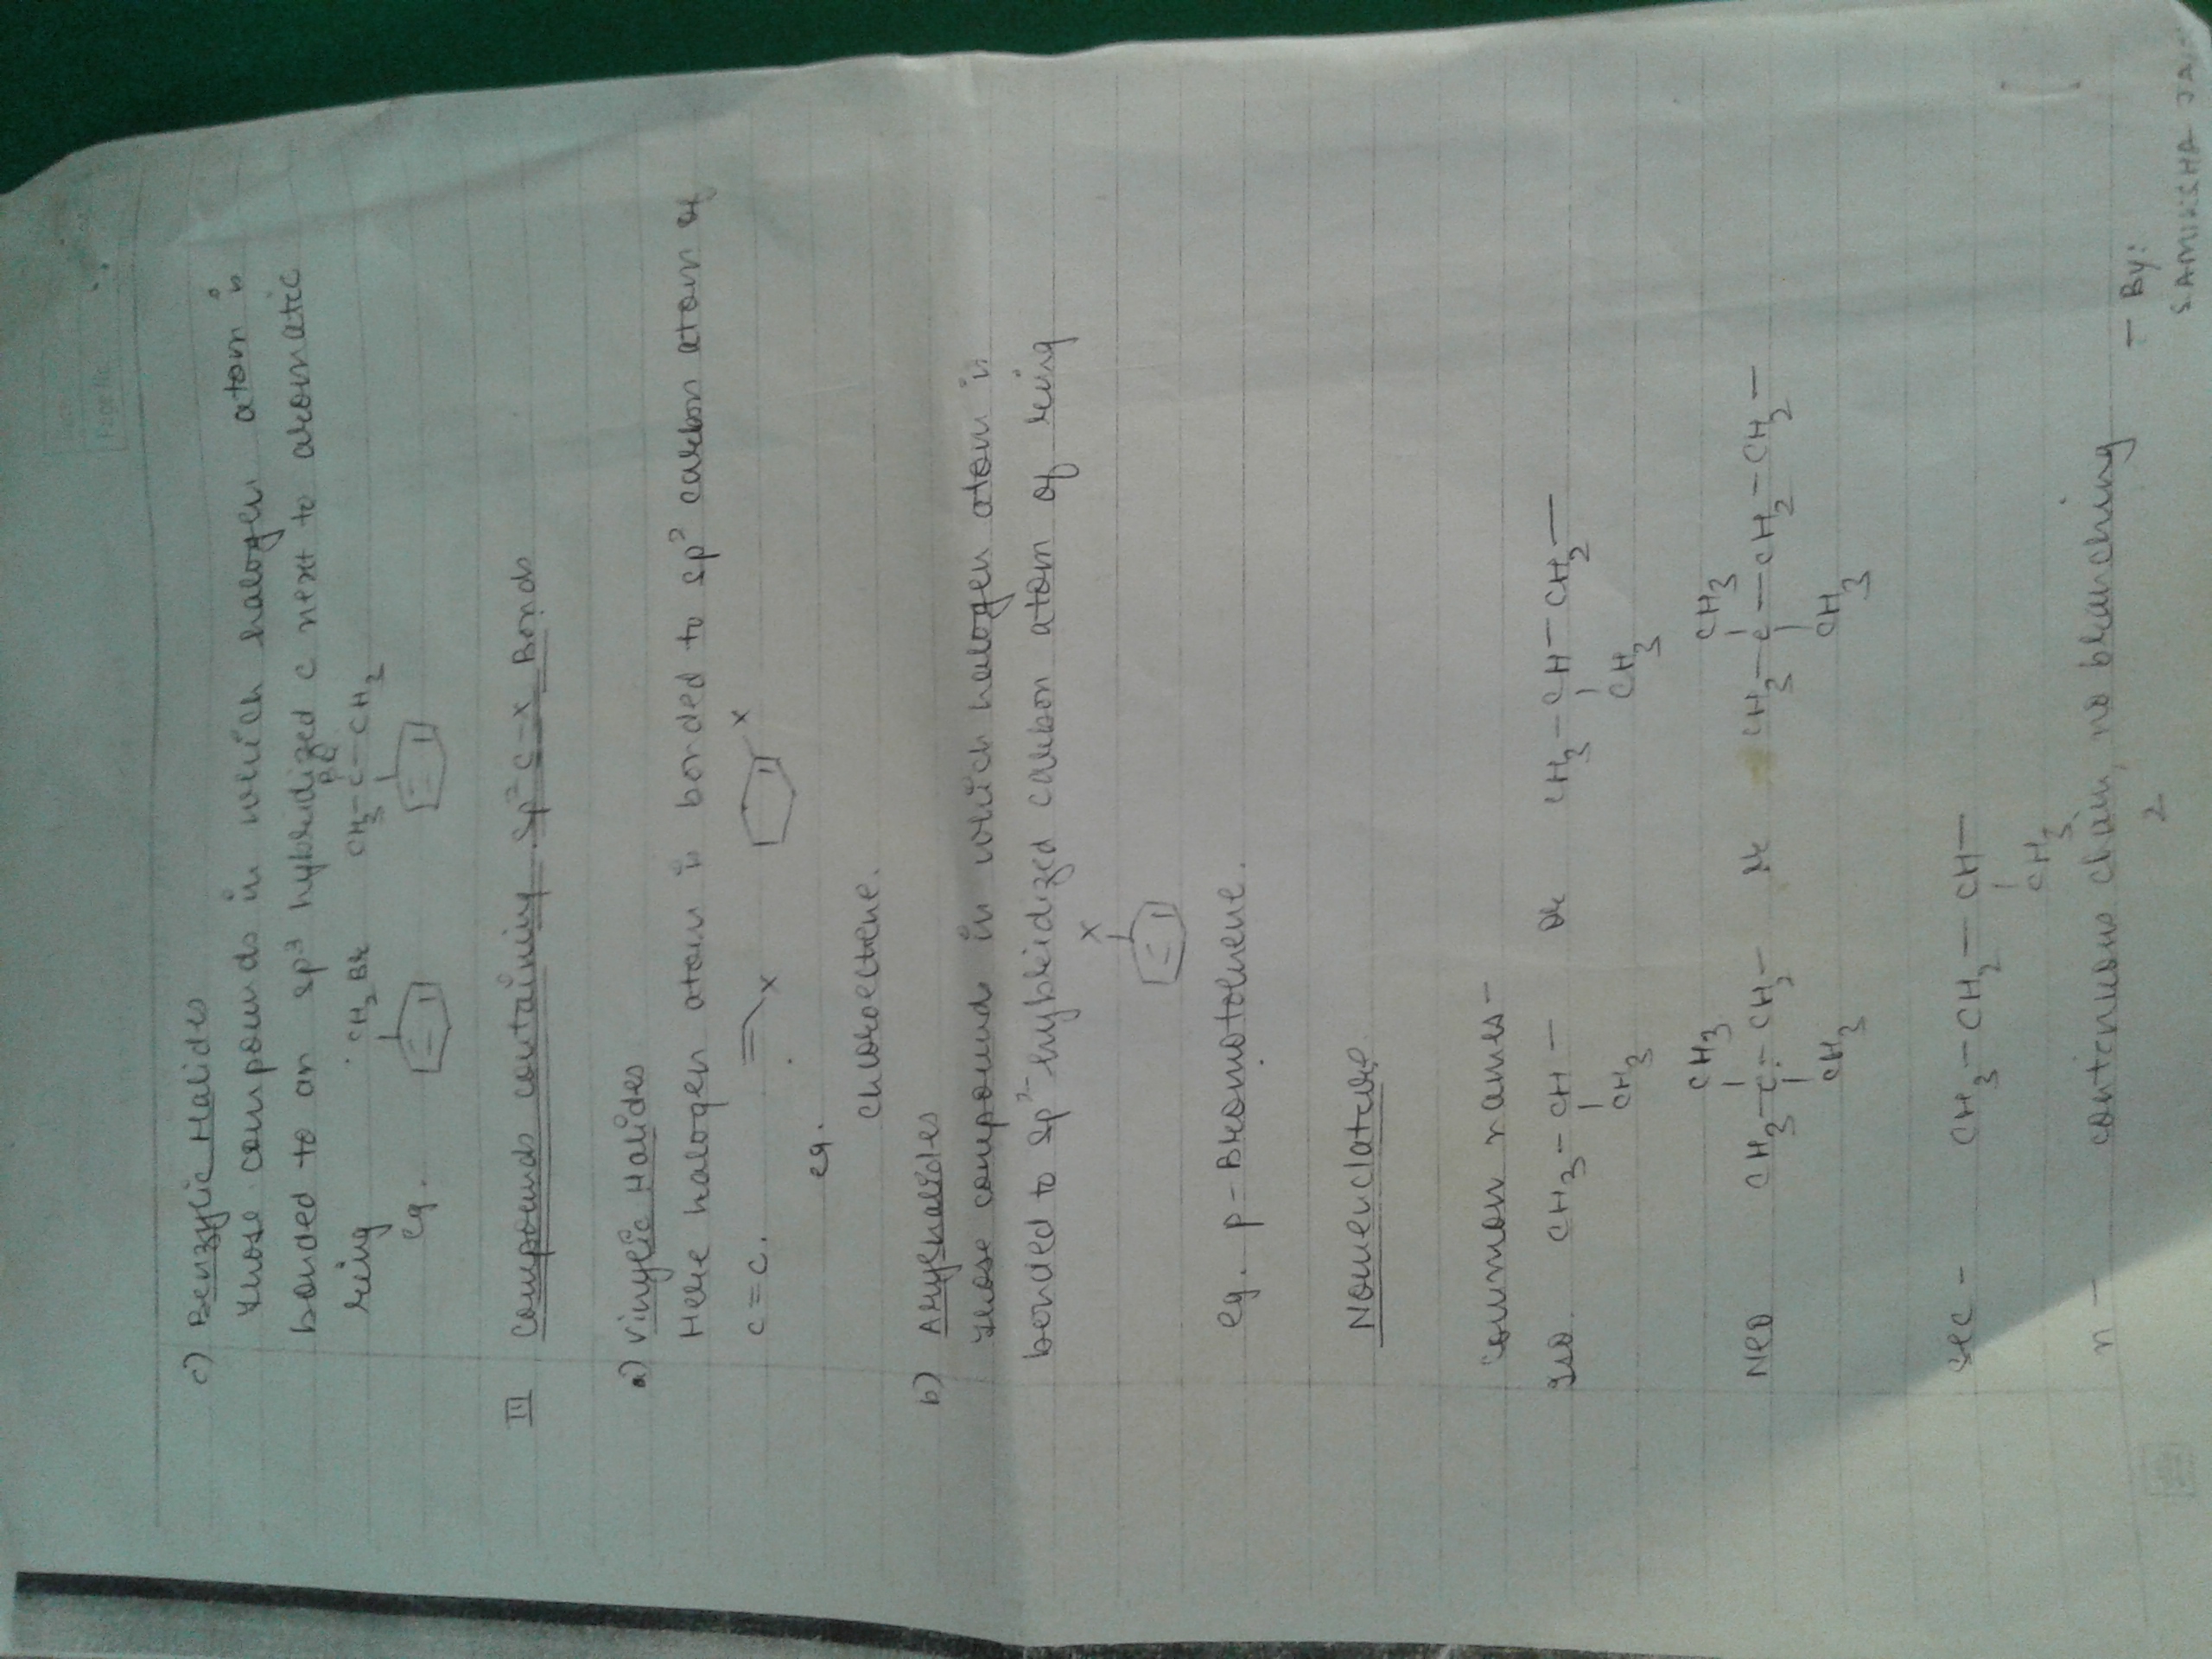 c) Benzylic Halides
Those compounds in which halogen atom is
bonded to an sp³ hybridized c next to aromatic
ring
CH₂Br CH₃-C-CH₂
eg.
III Compounds containing sp² C-X Bonds
a) Vinylic Halides
Here halogen atom is bonded to sp² carbon atom of
C=C. X X
eg.
chloroethene.
b) Arylhalides
Those compound in which halogen atom is
bonded to sp²-hybridized carbon atom of ring
X
eg. p-Bromotoluene.
Nomenclature
Common names-
Iso CH₃-CH- or CH₃-CH-CH₂-
CH₃ CH₃
CH₃ CH₃
Neo CH₃-C-CH₂- or CH₃-C-CH₂-CH₂-
CH₃ CH₃
sec- CH₃-CH₂-CH-
CH₃
n - contenuous chain, no branching
2 - By:
SAMIKSHA